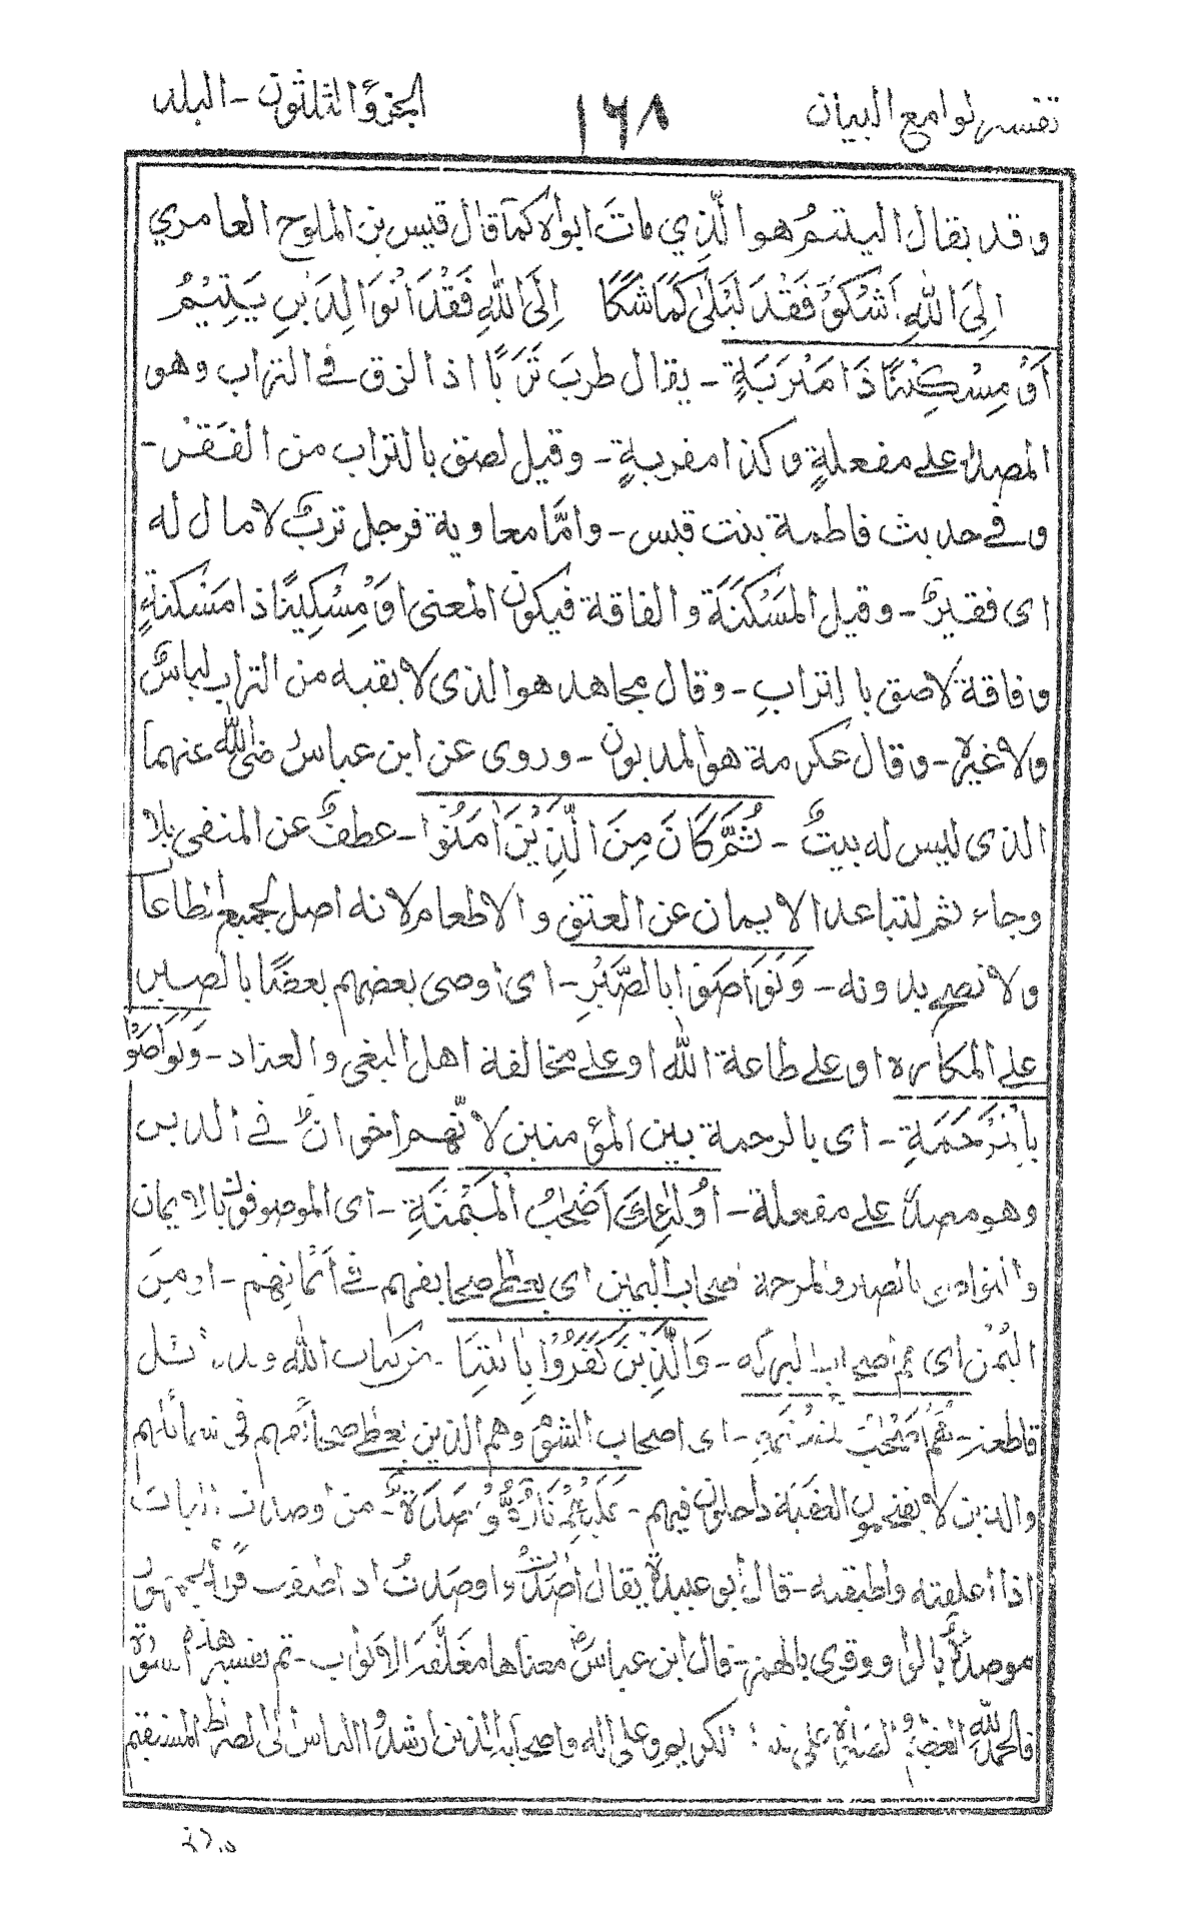 تفسير لوامع البيان ١٦٨ الجزء الثلثون - البلد
وقد يقال اليتيم هو الّذي مات ابواه كما قال قيس بن الملوح العامري
اِلَى اللهِ اَشْكُوْ فَقْدَ لَيْلٰى كَمَا شَكَا اِلَى اللهِ فَقْدَ الْوَالِدَيْنِ يَتِيْمُ
اَوْ مِسْكِيْنًا ذَا مَتْرَبَةٍ - يقال طرب تَرَبًا اذا لزق فى التراب وهو
المصدر على مفعلةٍ وكذا مقربةٍ - وقيل لصق بالتراب من الفَقْر -
وفى حديث فاطمة بنت قيس - وامّا معاوية فرجل تربٌ لا مال له
اى فقيرٌ - وقيل المَسْكَنَة والفاقة فيكون المعنى اوْ مِسْكِيْنًا ذا مَسْكنةٍ
وفاقة لاصق بالترابِ - وقال مجاهد هو الذى لا يقيه من التراب لباسٌ
ولا غيره - وقال عكرمة هو المديون - وروى عن ابن عباس رضى الله عنهما
الذى ليس له بيتٌ - ثُمَّ كَانَ مِنَ الَّذِيْنَ اٰمَنُوْا - عطفٌ عن المنفى بلا
وجاء ثم لتباعد الايمان عن العتق والاطعام لانه اصل لجميع الطاعات
ولا تصح بدونه - وَتَوَاصَوْا بِالصَّبْرِ - اى اوصى بعضهم بعضًا بالصبر
على المكاره او على طاعة الله او على مخالفة اهل البغى والعناد - وَتَوَاصَوْا
بِالْمَرْحَمَةِ - اى بالرحمة بين المؤمنين لانّهم اخوانٌ فى الدين
وهو مصدر على مفعلة - اُولٰئِكَ اَصْحٰبُ الْمَيْمَنَةِ - اى الموصوفون بالايمان
والتواصى بالصبر والمرحمة اصحاب اليمين اى يعطى صحايفهم فى اَيْمَانِهِم - او مِنَ
الْيُمْن اى هم اصحاب البركه - وَالَّذِيْنَ كَفَرُوْا بِاٰيٰتِنَا - من كتاب الله
قاطعة - هُمْ اَصْحٰبُ الْمَشْئَمَةِ - اى اصحاب الشؤم وهم الذين يعطى صحائفهم فى شمائلهم
والذين لا يقتحمون العقبة داخلون فيهم - عَلَيْهِمْ نَارٌ مُّؤْصَدَةٌ - من اوصدت الباب
اذا اغلقته واطبقته - قال ابو عبيدة يقال اصدت واوصدت اذا اطبقت قرأ الجمهور
موصدة بالواو وقرى بالهمز - قال ابن عباسؓ معناها مغلّقة الابواب - تم تفسير هذه السورة
فالحمد لله العظيم والصلوة على واله واصحابه الذين ارشدوا الناس الى الصراط المستقيم